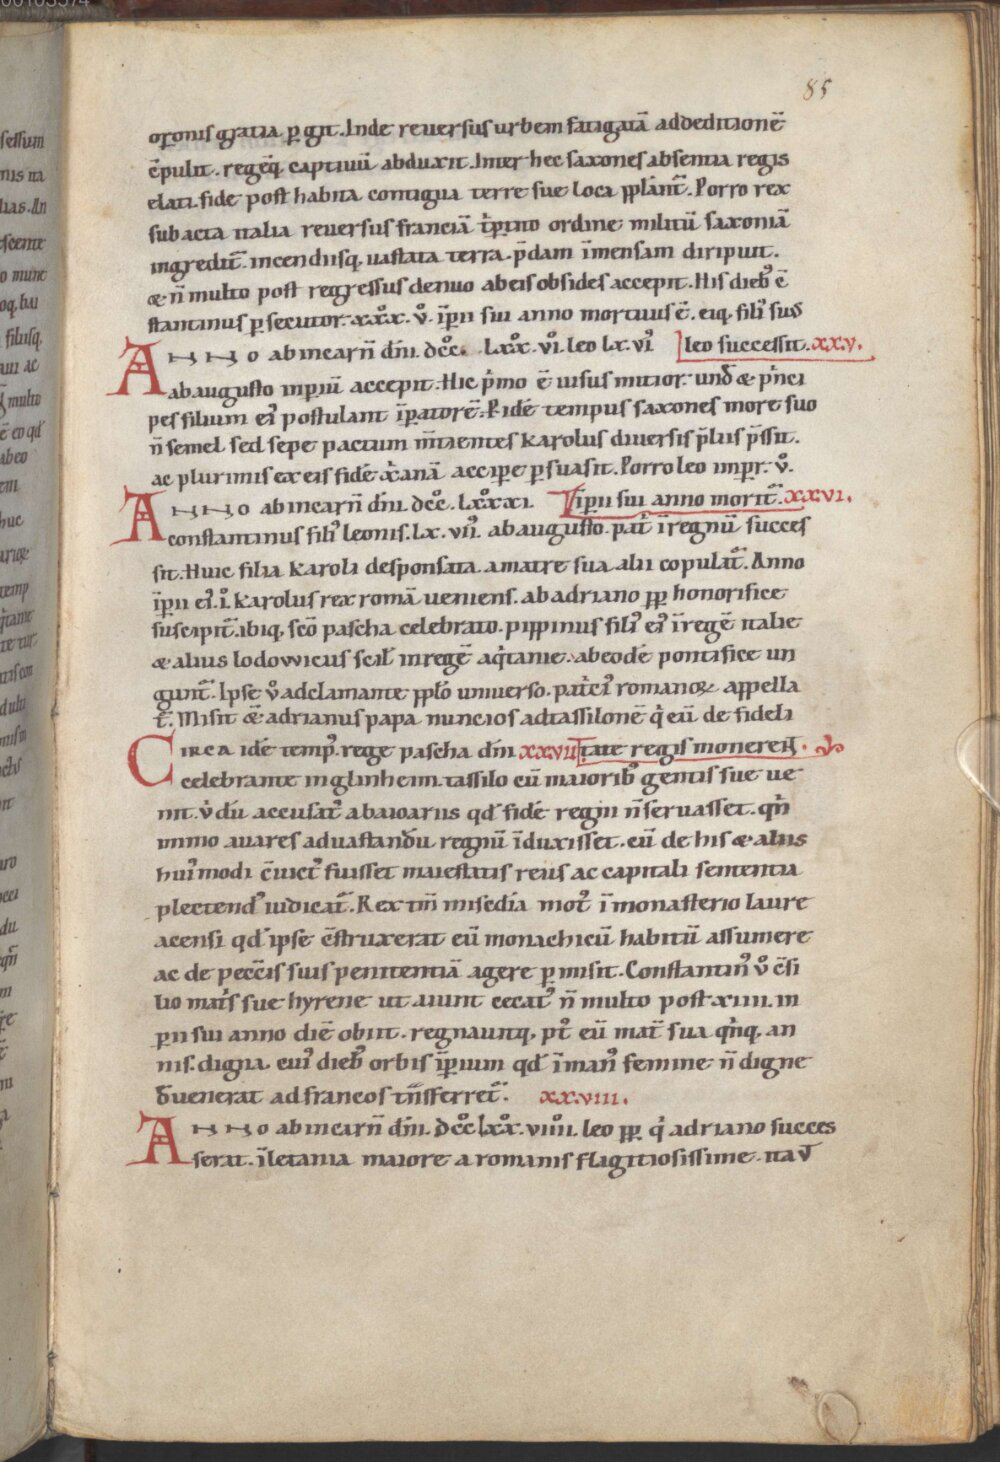 85
or̄onis gratia p̄ git. Inde reversus urbem fatigatā addeditionē
cēpulit. regeq̄ captivū abduxit. Inter hec saxones absentia regis
elati. fide post habita contigua terre sue loca pp̄lant̄. Porro rex
subacta italia reversus franciā tp̄tito ordine militū saxoniā
ingredit̄. incendiisq; vastata terra. p̄dam īmensam diripuit.
& n̄ multo post regressus denuo ab eis obsides accepit. His dieb; c̄
stantinus p̄secutor. xxx. v. īpii sui anno mortuus ē. eiq; fili' suus
ANNO ab incarn̄ dn̄i. dcc. lxx. vi. leo lx. vi leo successit. xxv.
ab augusto inp̄iū accepit. Hic p̄mo ē visus mitior. und̄ & p̄nci
pes filium ei' postulant īpatorē. P idē tempus saxones more suo
n̄ semel sed sepe pactum m̄tientes Karolus diversis p̄liis p̄ssit.
ac plurimis ex eis fidē xp̄ianā accipe p̄suasit. Porro leo imp̄r. v.
ANNO ab incarn̄ dn̄i. dcc. lxxxi. īpii sui anno morit̄. xxvi.
constantinus fili' leonis. lx. vii. ab augusto. pat̄ īregnū succes
sit. Huic filia Karoli desponsata. a matre sua alii copulat̄. Anno
īpii ei' .i. Karolus rex romā veniens. ab adriano pp̄ honorifice
suscipit̄. ibiq; sc̄o pascha celebrato. pippinus fili' ei' īregē italie
& alius lodowicus scil̄ in regē aq̄tanie. ab eodē pontifice un
gunt̄. Ipse v̄ adclamante pp̄lo universo. pat̄ci' romanoꝝ appella
t̄. Misit &̄ adrianus papa nuncios ad tassilonē q̄ eū de fideli
CIRCA idē temp; rege pascha dn̄i xxvii tate regis monerent̄.
celebrante inglinheim. tassilo cū maiorib; gentis sue ve
nit. v̄ dū accusat̄ a baioariis qd̄ fidē regni n̄ servasset. qn̄
immo avares ad vastandū regnū īduxisset. cū de his & aliis
hui'modi c̄vict' fuisset maiestatis reus ac capitali sententia
plectend' iudicat̄. Rex tn̄ mis̄c̄dia mot' ī monasterio laure
acensi qd̄ ipse c̄struxerat eū monachicū habitū assumere
ac de pecc̄is suis penitentiā agere p̄misit. Constantin' v̄ c̄si
lio mat̄s sue hyrene ut aiunt cecat' n̄ multo post xiiii. in
p̄ii sui anno diē obiit. regnavitq; p̄t eū mat̄ sua q̄nq; an
nis. digna. cui' dieb; orbis īpium qd̄ ī man' femine n̄ digne
dvenerat ad francos t̄nsferret̄. xxviii.
ANNO ab incarn̄ dn̄i. dcc lxx. viiii. leo pp̄ q̄ adriano succes
serat. ī letania maiore a romanis flagitiosissime. ita v̄